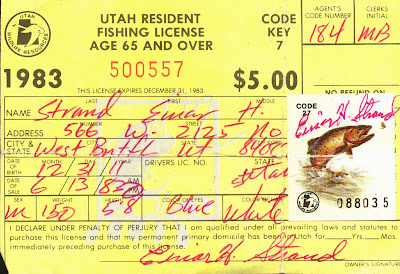 UTAH WILDLIFE RESOURCES
UTAH RESIDENT
FISHING LICENSE
AGE 65 AND OVER
500557
CODE
KEY
7
AGENT'S
CODE NUMBER
CLERKS
INITIAL
184 MB
1983
THIS LICENSE EXPIRES DECEMBER 31, 1983.
$5.00
NO REFUND ON
LAST FIRST MIDDLE
NAME Strand Einar H.
STREET
ADDRESS 566 W. 2125 No
CITY &
STATE West Bntfl UT
DATE OF BIRTH
MONTH DAY YEAR
12 31 11
DRIVERS LIC. NO.
STATE
Utah
DATE
6 13 83
SEX WEIGHT HEIGHT EYES HAIR
m 150 5-8 Blue White
CODE
27
Einar H. Strand
088035
I DECLARE UNDER PENALTY OF PERJURY that I am qualified under all prevailing laws and statutes to
purchase this license and that my permanent primary domicile has been in Utah for Yrs. Mos.
immediately preceding purchase of this license.
Einar H. Strand
OWNER'S SIGNATURE